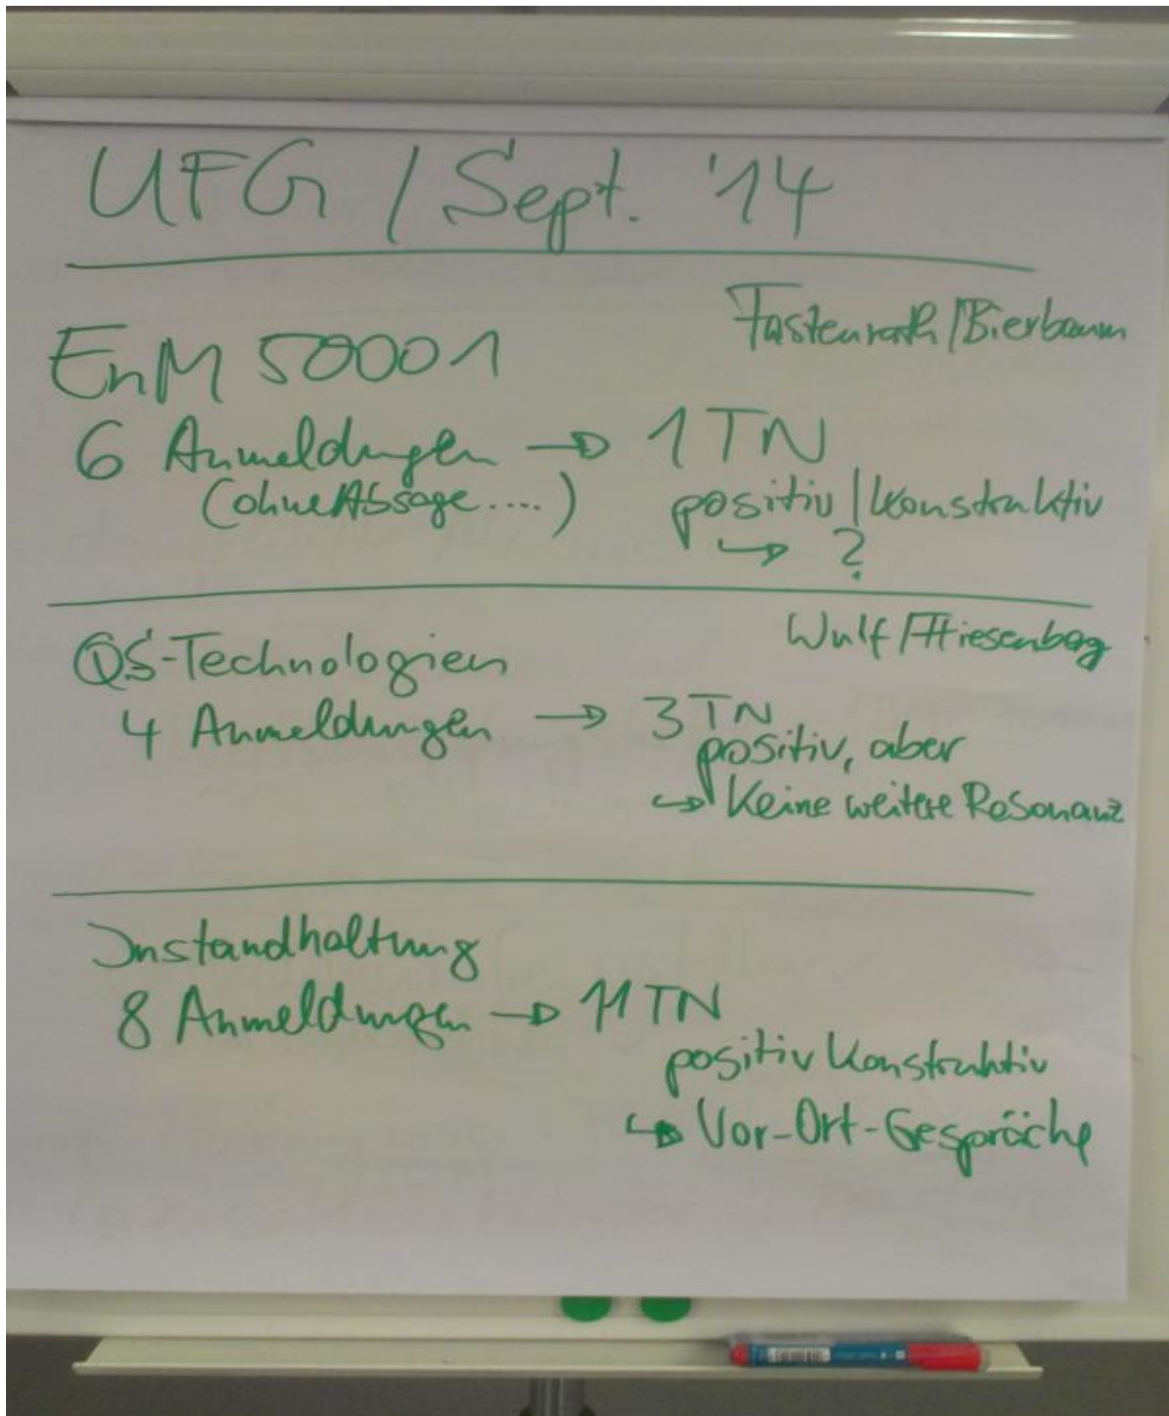 UFG / Sept. '14
Fastenrath / Bierbaum
EnM 50001
6 Anmeldungen → 1 TN
(ohne Absage....) positiv / konstruktiv
↳ ?
Wulf /
QS-Technologien
4 Anmeldungen → 3 TN
positiv, aber
↳ Keine weitere Resonanz
Instandhaltung
8 Anmeldungen → 11 TN
positiv konstruktiv
↳ Vor-Ort-Gespräche